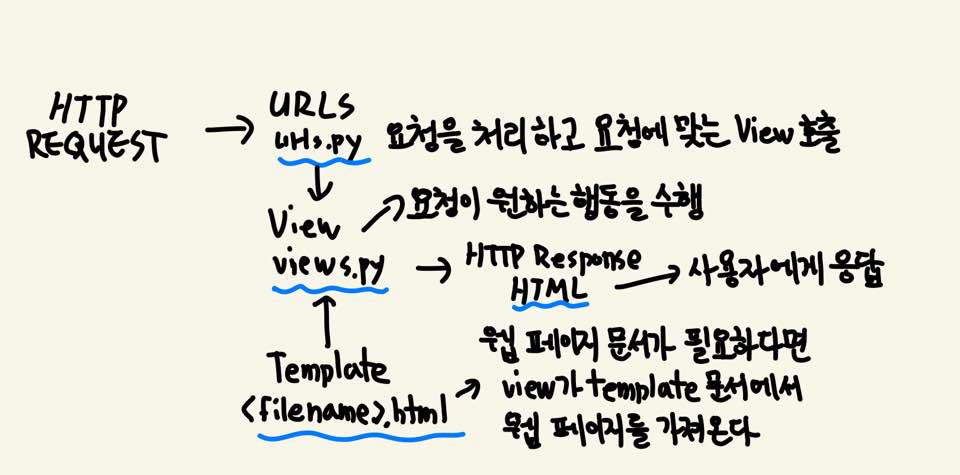 HTTP
REQUEST
URLS
urls.py 요청을 처리하고 요청에 맞는 View 호출
View 요청이 원하는 행동을 수행
views.py
HTTP Response
HTML
사용자에게 응답
Template
<filename>.html
웹 페이지 문서가 필요하다면
view가 template 문서에서
웹 페이지를 가져온다